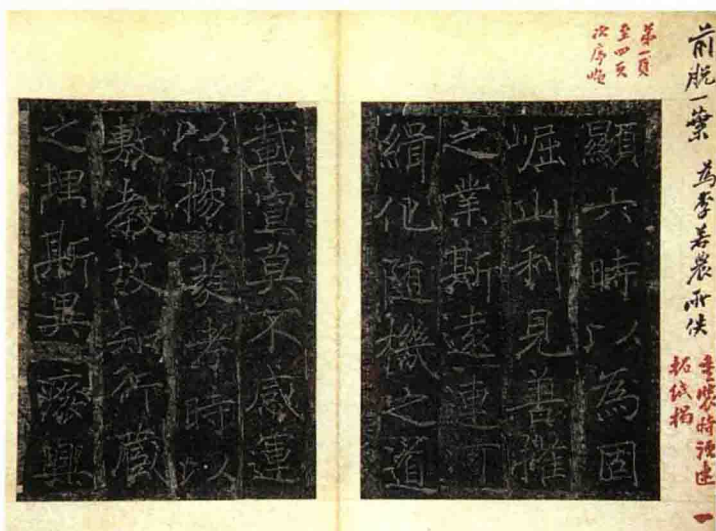 前脫一葉 為李若農所佚
重裝時須
一
第一頁
至四頁
次序
顯六時以為固
崛山利見善權
之業斯遠連河
緝化随機之道
載宣莫不感運
以揚蕤考時以
敷教故知行藏
之理斯異廢興